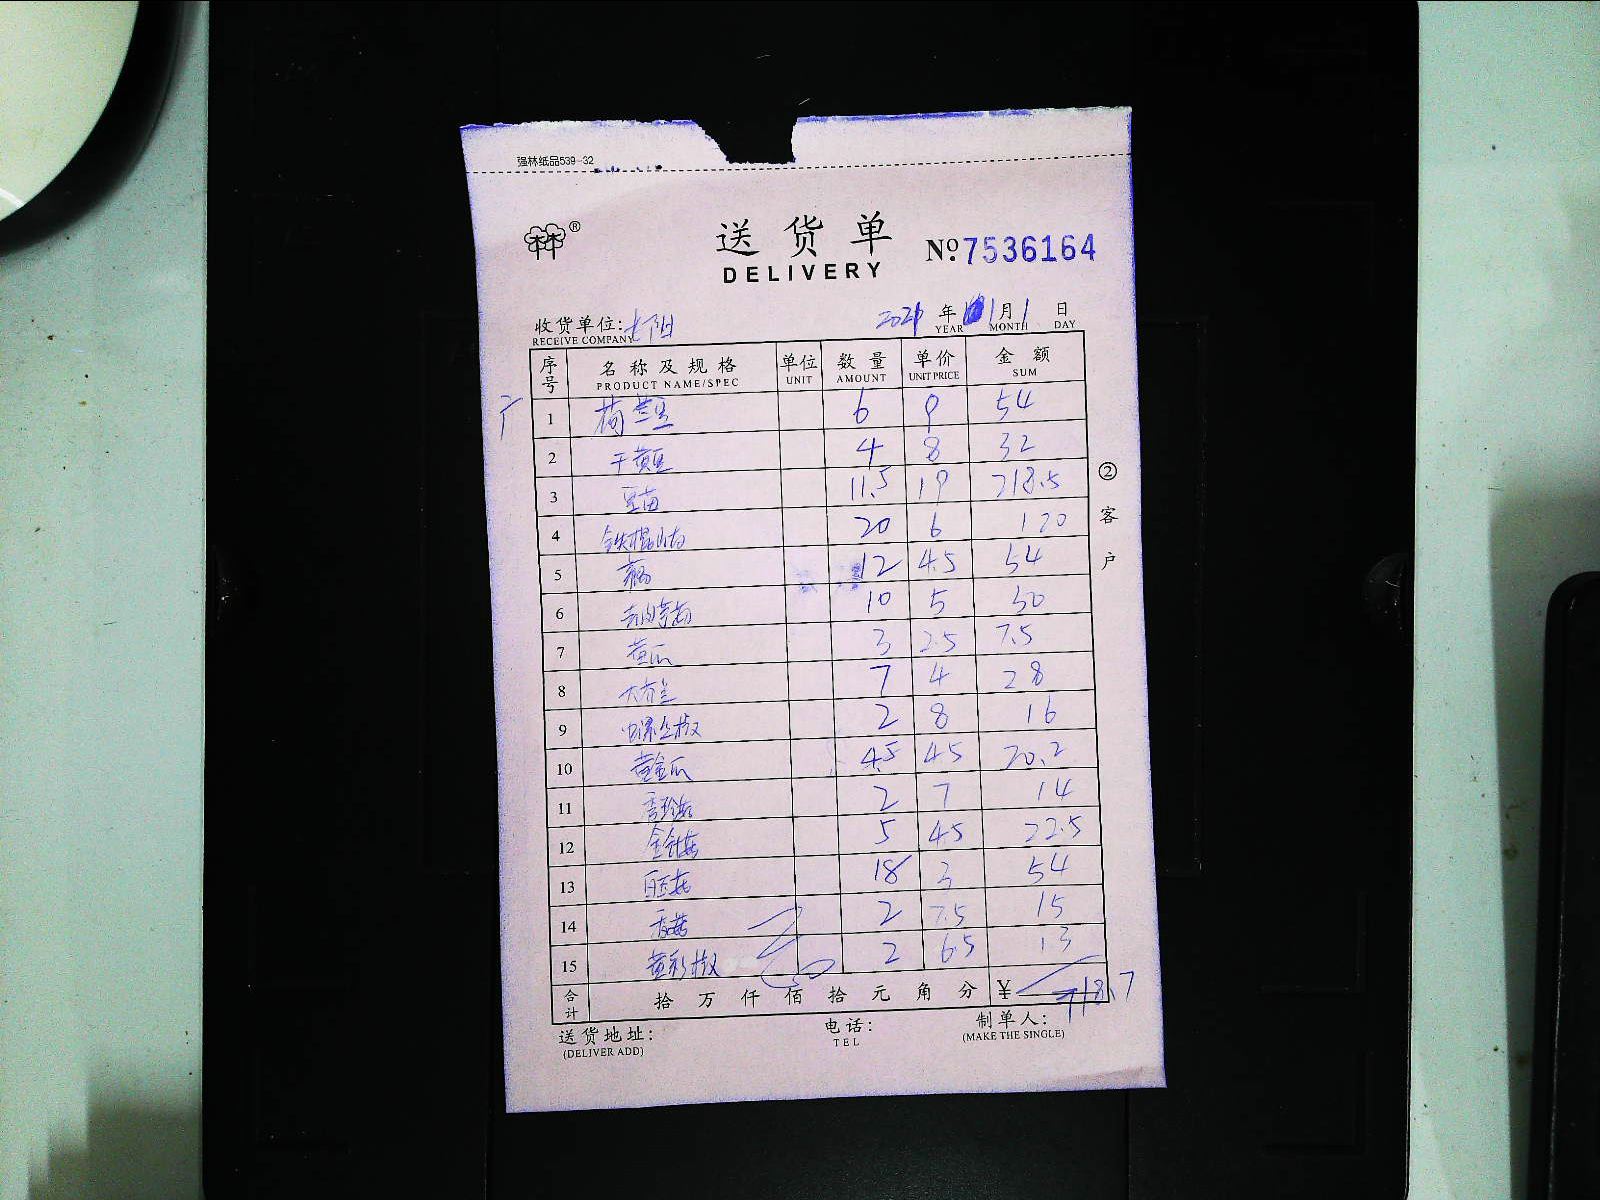 强林纸品539-32
林®
送货单
DELIVERY
№:7536164
收货单位:
RECEIVE COMPANY
2021年 1月1日
YEAR MONTH DAY
序号 名称及规格 单位 数量 单价 金额
PRODUCT NAME/SPEC UNIT AMOUNT UNIT PRICE SUM
1 荷兰豆 6 9 54
2 干黄豆 4 8 32
3 豆苗 11.5 19 218.5
4 铁棍山药 20 6 120
5 12 4.5 54
6 10 5 50
7 黄瓜 3 2.5 7.5
8 7 4 28
9 螺丝椒 2 8 16
10 黄金瓜 4.5 4.5 20.2
11 秀珍菇 2 7 14
12 金针菇 5 4.5 22.5
13 白玉菇 18 3 54
14 香菇 2 7.5 15
15 黄彩椒 2 6.5 13
合计 拾万仟佰拾元角分 ¥ 718.7
② 客户
送货地址: 电话: 制单人:
(DELIVER ADD) TEL (MAKE THE SINGLE)